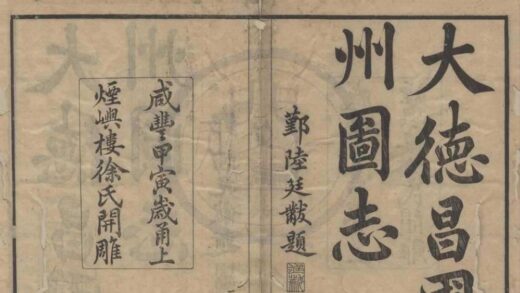 大徳昌
州圖志
鄞陸廷黻題
咸豐甲寅歲甬上
煙嶼樓徐氏開雕